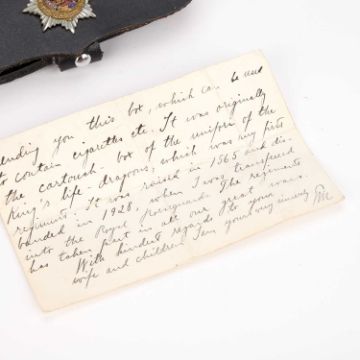 ending you this box, which can be used
to contain cigarettes etc. It was originally
the cartouch-box of the uniform of the
King's life-dragoons, which was my first
regiment. It was raised in 1565 and dis-
banded in 1928, when I was transferred
into the Royal Horseguards. The regiment
has taken part in all our great wars.
With kindest regards to your
wife and children I am yours very sincerely